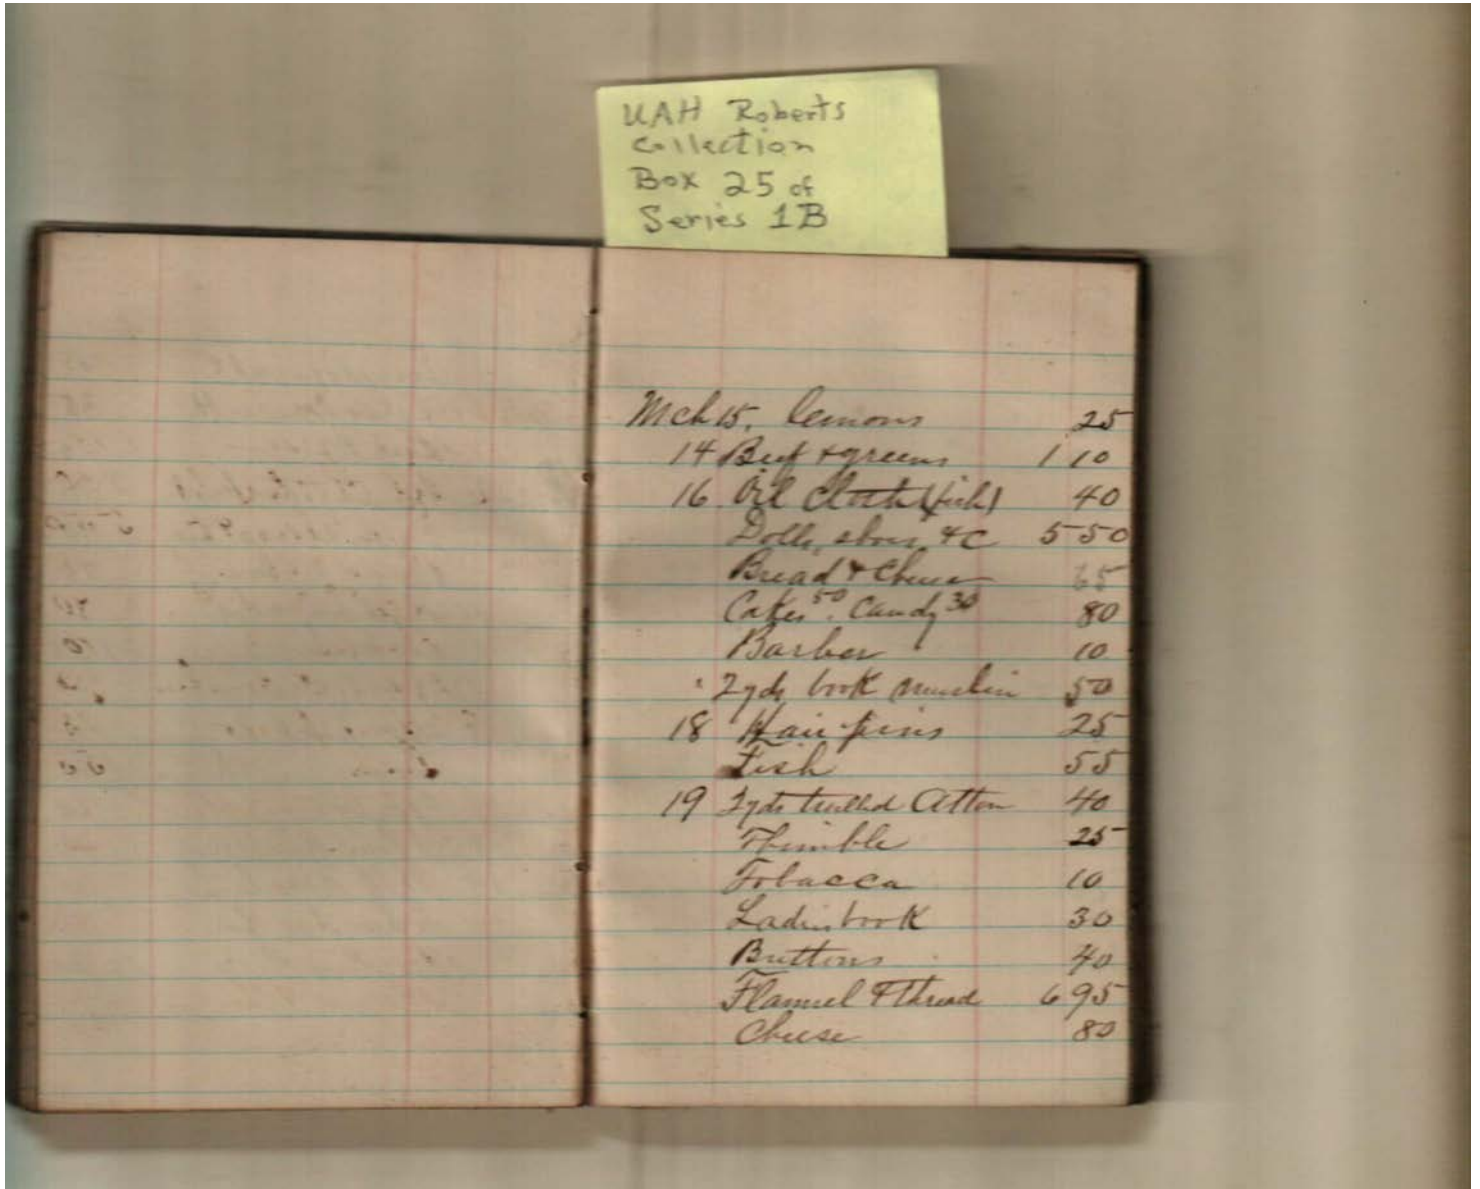 UAH Roberts
Collection
Box 25 of
Series 1B
Mch 15. lemons 25
14 Beef + greens 1 10
16 Oil Cloth 40
Dolls, shoes, &c 5 50
Bread & Cheese 65
Cakes 50. Candy 30 80
Barber 10
2 yds book muslin 50
18 Hair-pins 25
Fish 55
19 2 yds twilled Cotton 40
Thimble 25
Tobacca 10
Ladies book 30
Buttons 40
Flannel & thread 6 95
Cheese 80